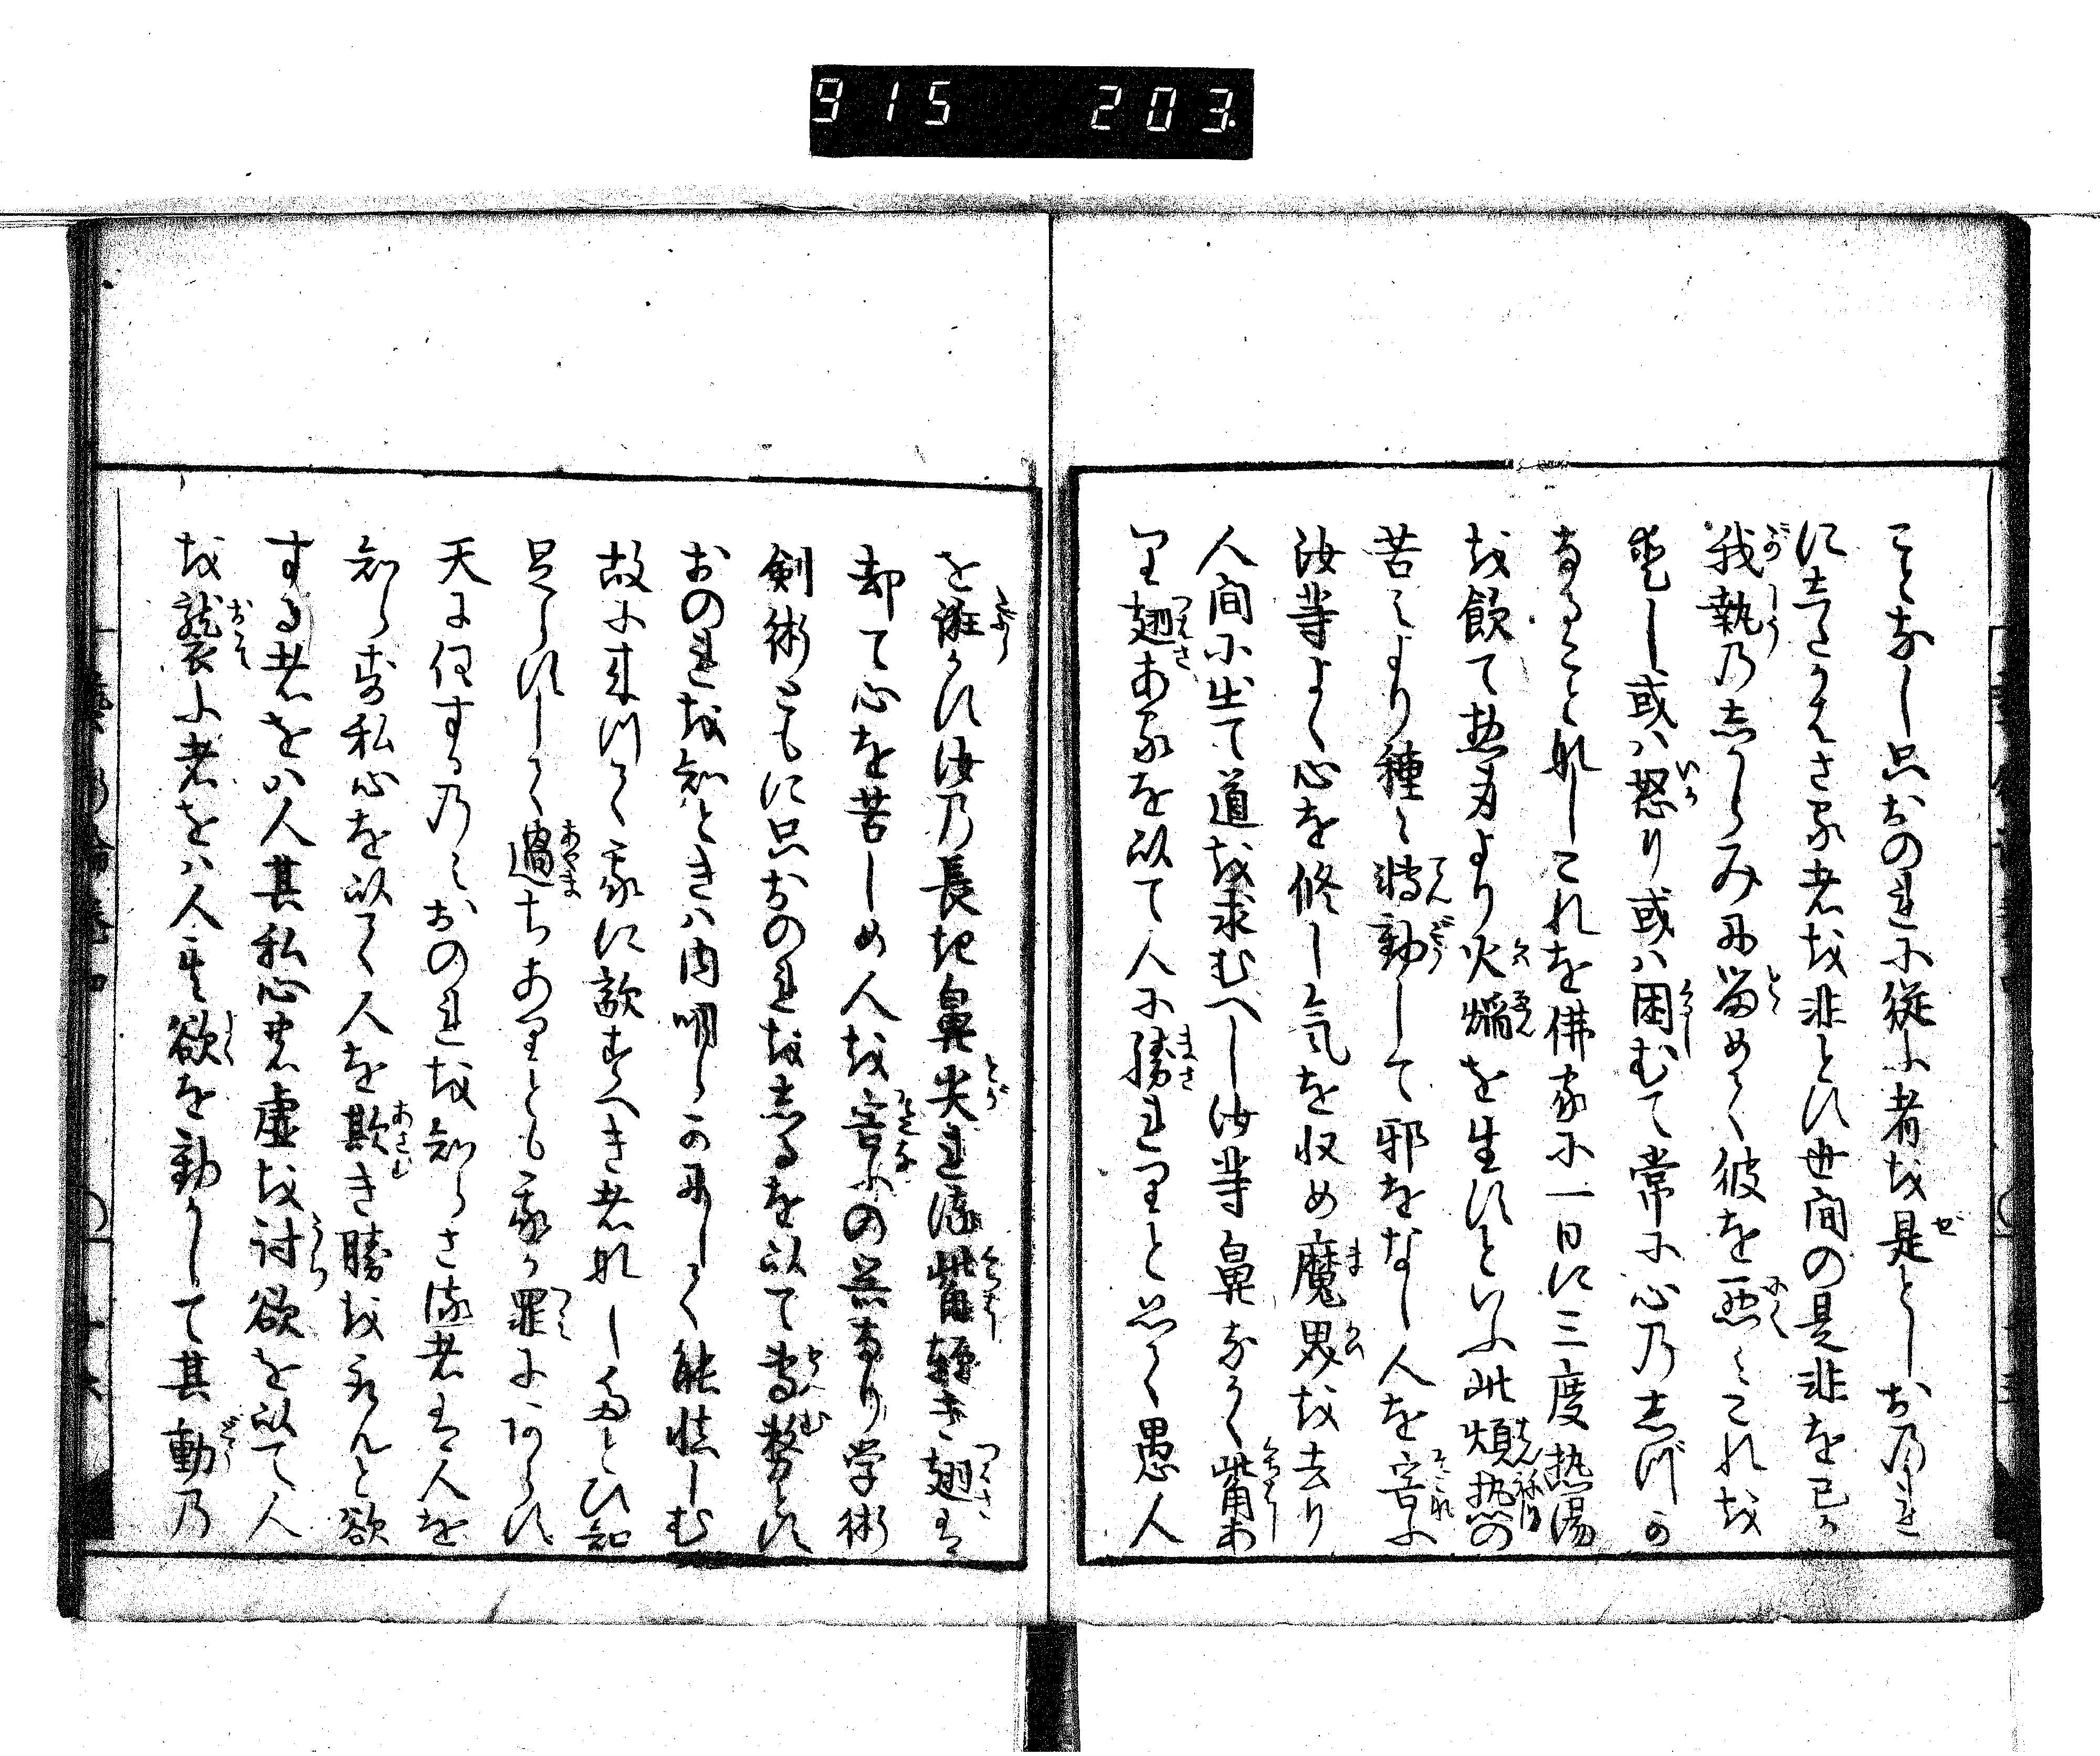 915 203
ことなし只おのれに従ふ者を是としおのれ
にしたかはさる者を非とす世間の是非を己か
我執のしからみに留めて彼を悪みこれを
愛し或は怒り或は困むて常に心のしづか
なること無しこれを佛家に一日に三度熱湯
を飲て熱身より火焔を生すといふ此煩熱の
苦みより種々轉動して邪をなし人を害ふ
汝等よく心を修し気を収め魔界を去り
人間に出て道を求むへし汝等鼻なかく觜あ
り翅あるを以て人に勝れりと思て愚人
を誑かす汝の長き鼻尖れる觜軽き翅は
却て心を苦しめ人を害ふの器なり学術
剣術ともに只おのれをしるを以て専務とす
おのれを知ときは内明らかにしてよく慎しむ
故に来つて我に敵すへき者無したとひ知
足らすして過ちありとも我か罪にあらす
天に任するのみおのれを知らさる者は人を
知らす私心を以て人を欺き勝を取んと欲
する者をは人其私心の虚を討欲を以て人
を襲ふ者をは人其欲を動かして其動の